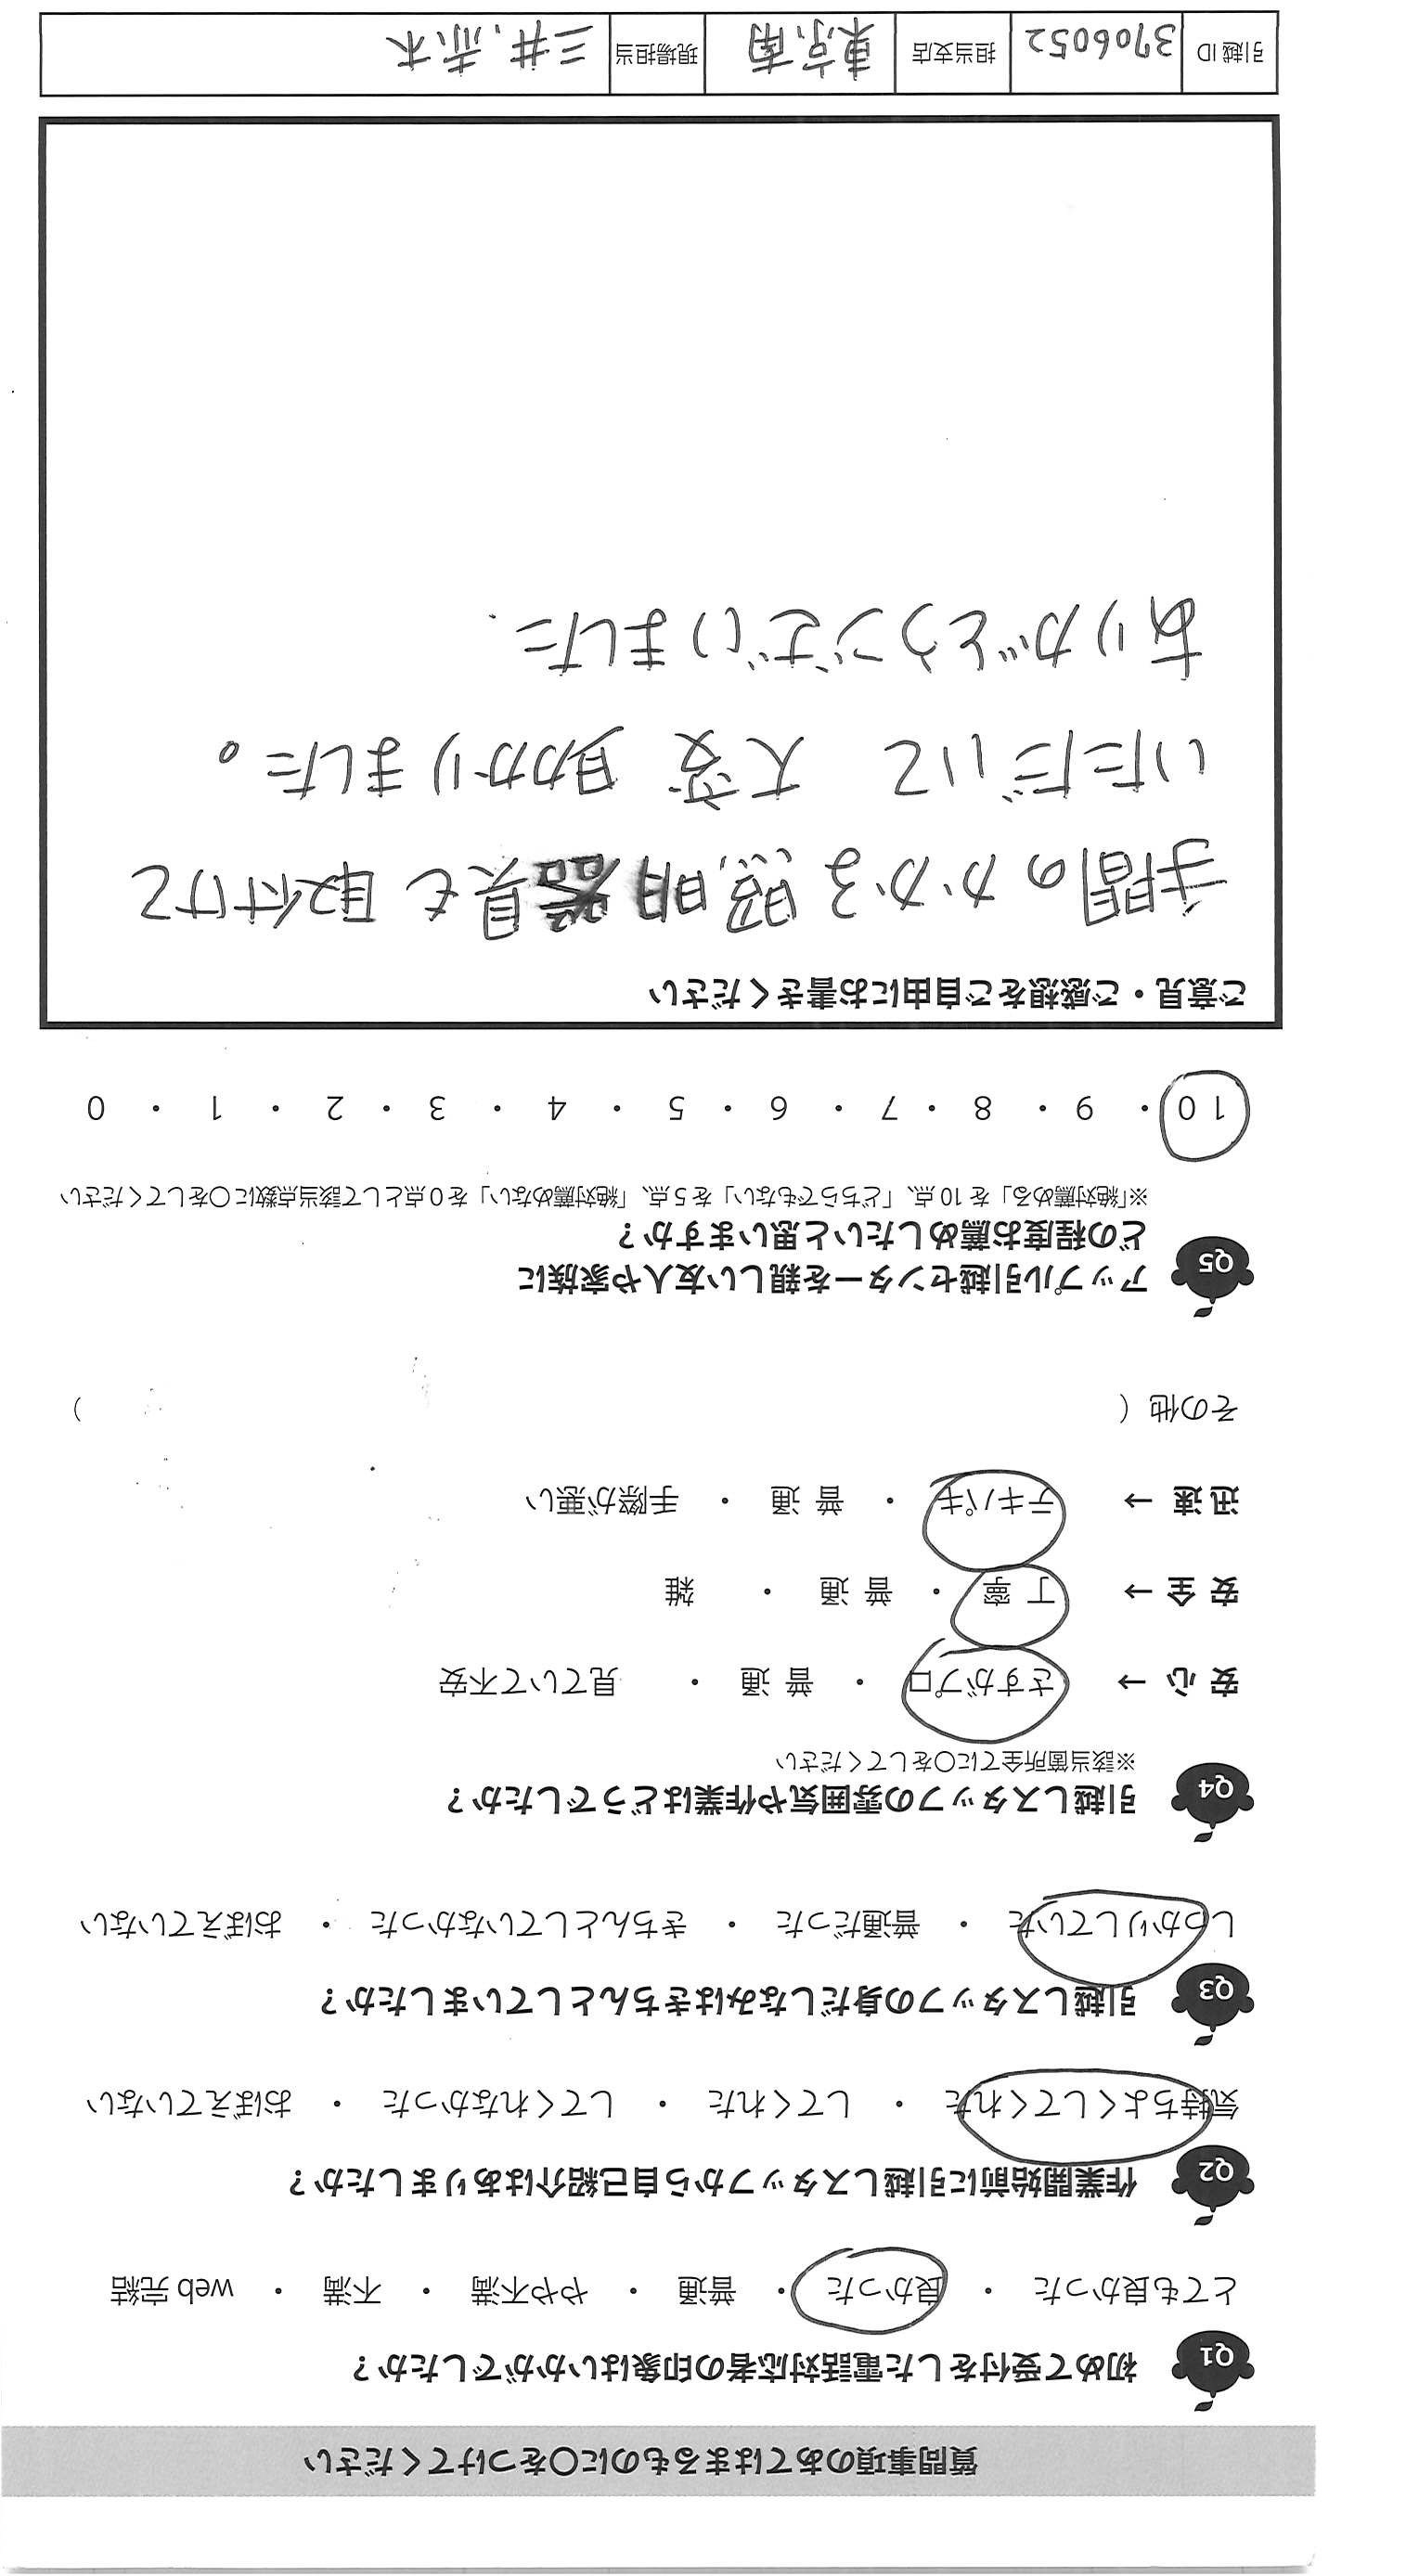 質問事項のあてはまるものに〇をつけてください
Q1 初めて受付をした電話対応者の印象はいかがでしたか？
とても良かった ・ 良かった ・ 普通 ・ やや不満 ・ 不満 ・ web 完結
Q2 作業開始前に引越しスタッフから自己紹介はありましたか？
気持ちよくしてくれた ・ してくれた ・ してくれなかった ・ おぼえていない
Q3 引越しスタッフの身だしなみはきちんとしていましたか？
しっかりしていた ・ 普通だった ・ きちんとしていなかった ・ おぼえていない
Q4 引越しスタッフの雰囲気や作業はどうでしたか？
※該当箇所全てに〇をしてください
安心 → さすがプロ ・ 普通 ・ 見ていて不安
安全 → 丁寧 ・ 普通 ・ 雑
迅速 → テキパキ ・ 普通 ・ 手際が悪い
その他（ ）
Q5 アップル引越センターを親しい友人や家族に
どの程度お薦めしたいと思いますか？
※「絶対薦める」を10点、「どちらでもない」を5点、「絶対薦めない」を0点として該当点数に〇をしてください
10 ・ 9 ・ 8 ・ 7 ・ 6 ・ 5 ・ 4 ・ 3 ・ 2 ・ 1 ・ 0
ご意見・ご感想をご自由にお書きください
手間のかかる照明器具も取付けて
いただいて 大変 助かりました。
ありがとうございました.
引越ID 3706052 担当支店 東京南 現場担当 三井、赤木